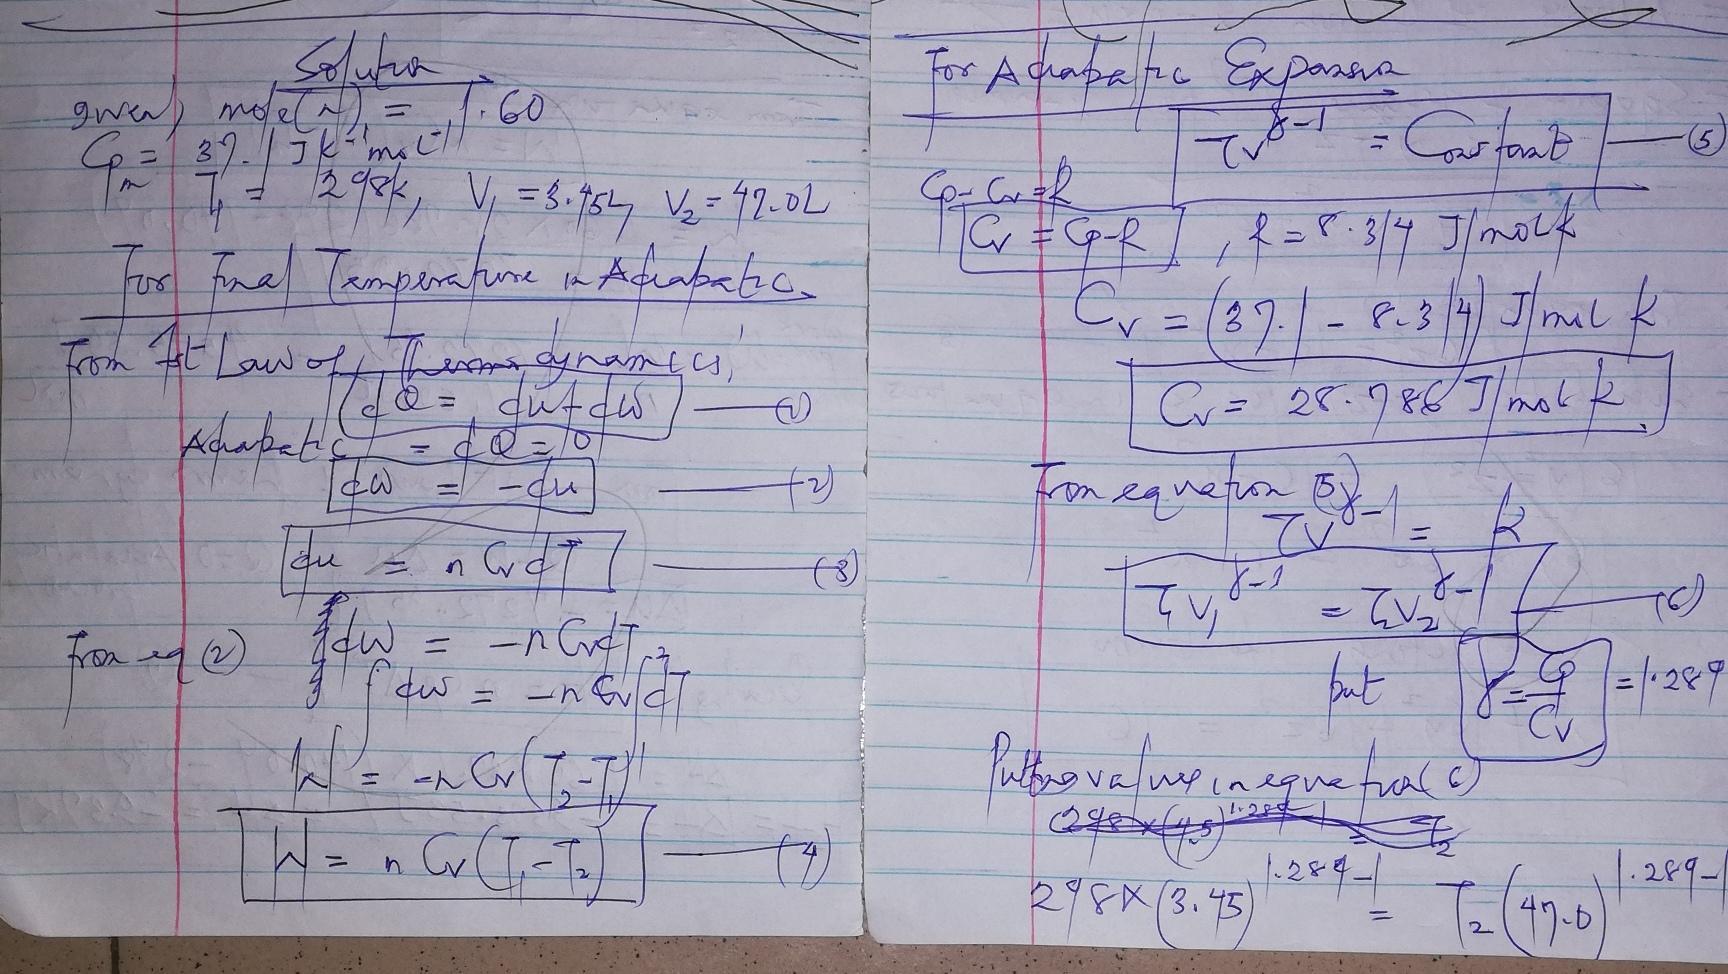 Solution
given, mole(n) = 1.60
Cpm = 37.1 JK⁻¹mol⁻¹
T₁ = 298K, V₁ = 3.45L, V₂ = 47.0L
For Final Temperature in Adiabatic.
From 1st Law of Thermodynamics,
dQ = du + dW —(1)
Adiabatic = dQ = 0
dW = -du —(2)
du = nCvdT —(3)
From eq (2) dW = -nCvdT
∫dW = -nCv∫₁²dT
W = -nCv(T₂-T₁)
W = nCv(T₁-T₂) —(4)
For Adiabatic Expansion
TV^γ-1 = Constant —(5)
Cp-Cv=R
Cv = Cp-R, R = 8.314 J/molk
Cv = (37.1 - 8.314) J/mol k
Cv = 28.786 J/mol k
From equation (5)
TV^γ-1 = k
T₁V₁^γ-1 = T₂V₂^γ-1 —(6)
but γ = Cp/Cv = 1.289
Putting values in equation (6)
298×(3.45)^1.289-1 = T₂(47.0)^1.289-1